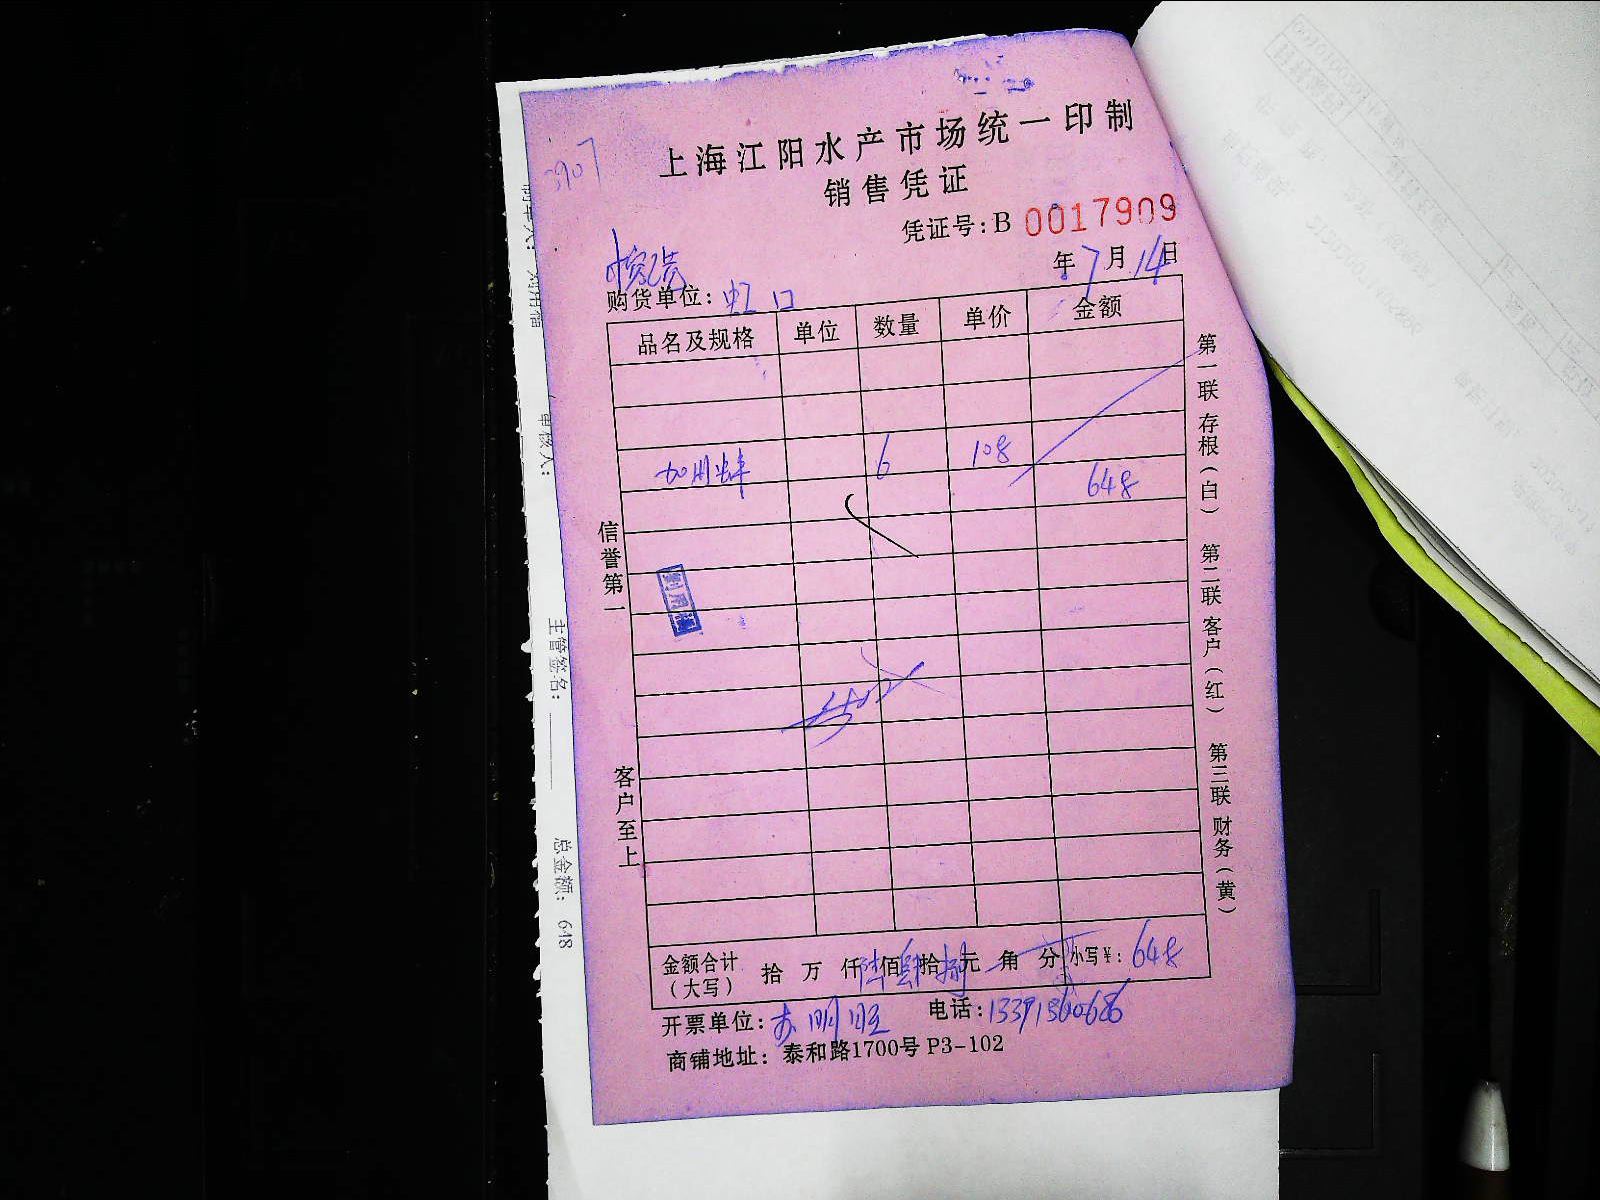 上海江阳水产市场统一印制
销售凭证
凭证号:B 0017909
年7月14日
购货单位:虹口
品名及规格 单位 数量 单价 金额
加州蚌 6 108 648
信誉第一
客户至上
第一联存根(白) 第二联客户(红) 第三联财务(黄)
金额合计(大写) 拾 万 仟陆佰肆拾捌元 角 分 小写¥:648
开票单位: 电话:13391360686
商铺地址:泰和路1700号P3-102
审核人:
主管签名:
总金额: 648